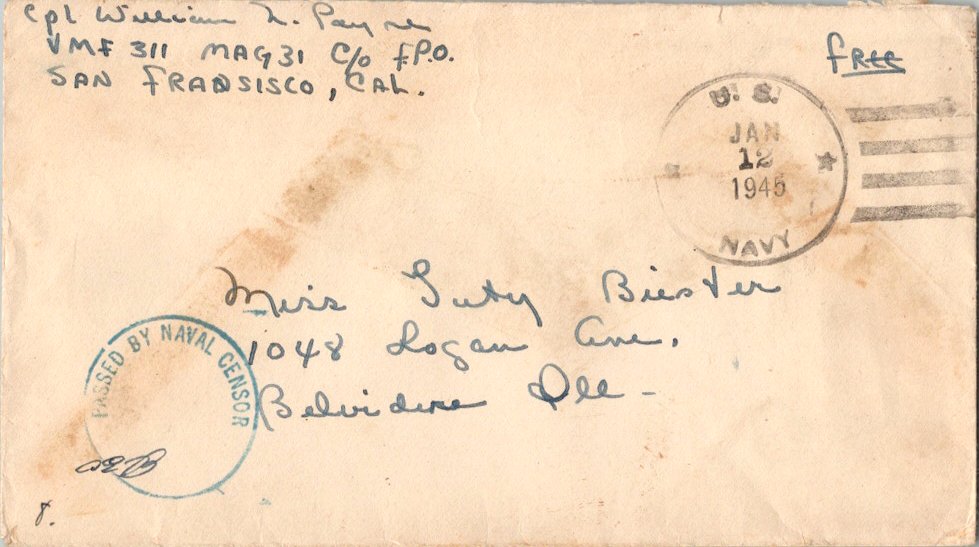 Cpl William L. Payne
VMF 311 MAG31 C/o F.P.O.
SAN FRANSISCO, CAL.
FREE
U. S.
JAN
12
1945
NAVY
Miss Guty Biester
1048 Logan Ave.
Belvidere Ill-
PASSED BY NAVAL CENSOR